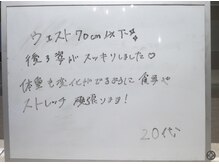 ウエスト70cm以下!!
後ろ姿がスッキリしました○
体重も変化がでるように食事や
ストレッチ頑張ります!
20代